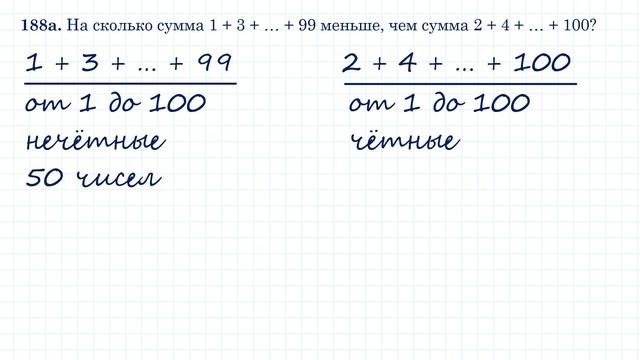 188а. На сколько сумма 1 + 3 + … + 99 меньше, чем сумма 2 + 4 + … + 100?
1 + 3 + ... + 99
от 1 до 100
нечётные
50 чисел
2 + 4 + ... + 100
от 1 до 100
чётные